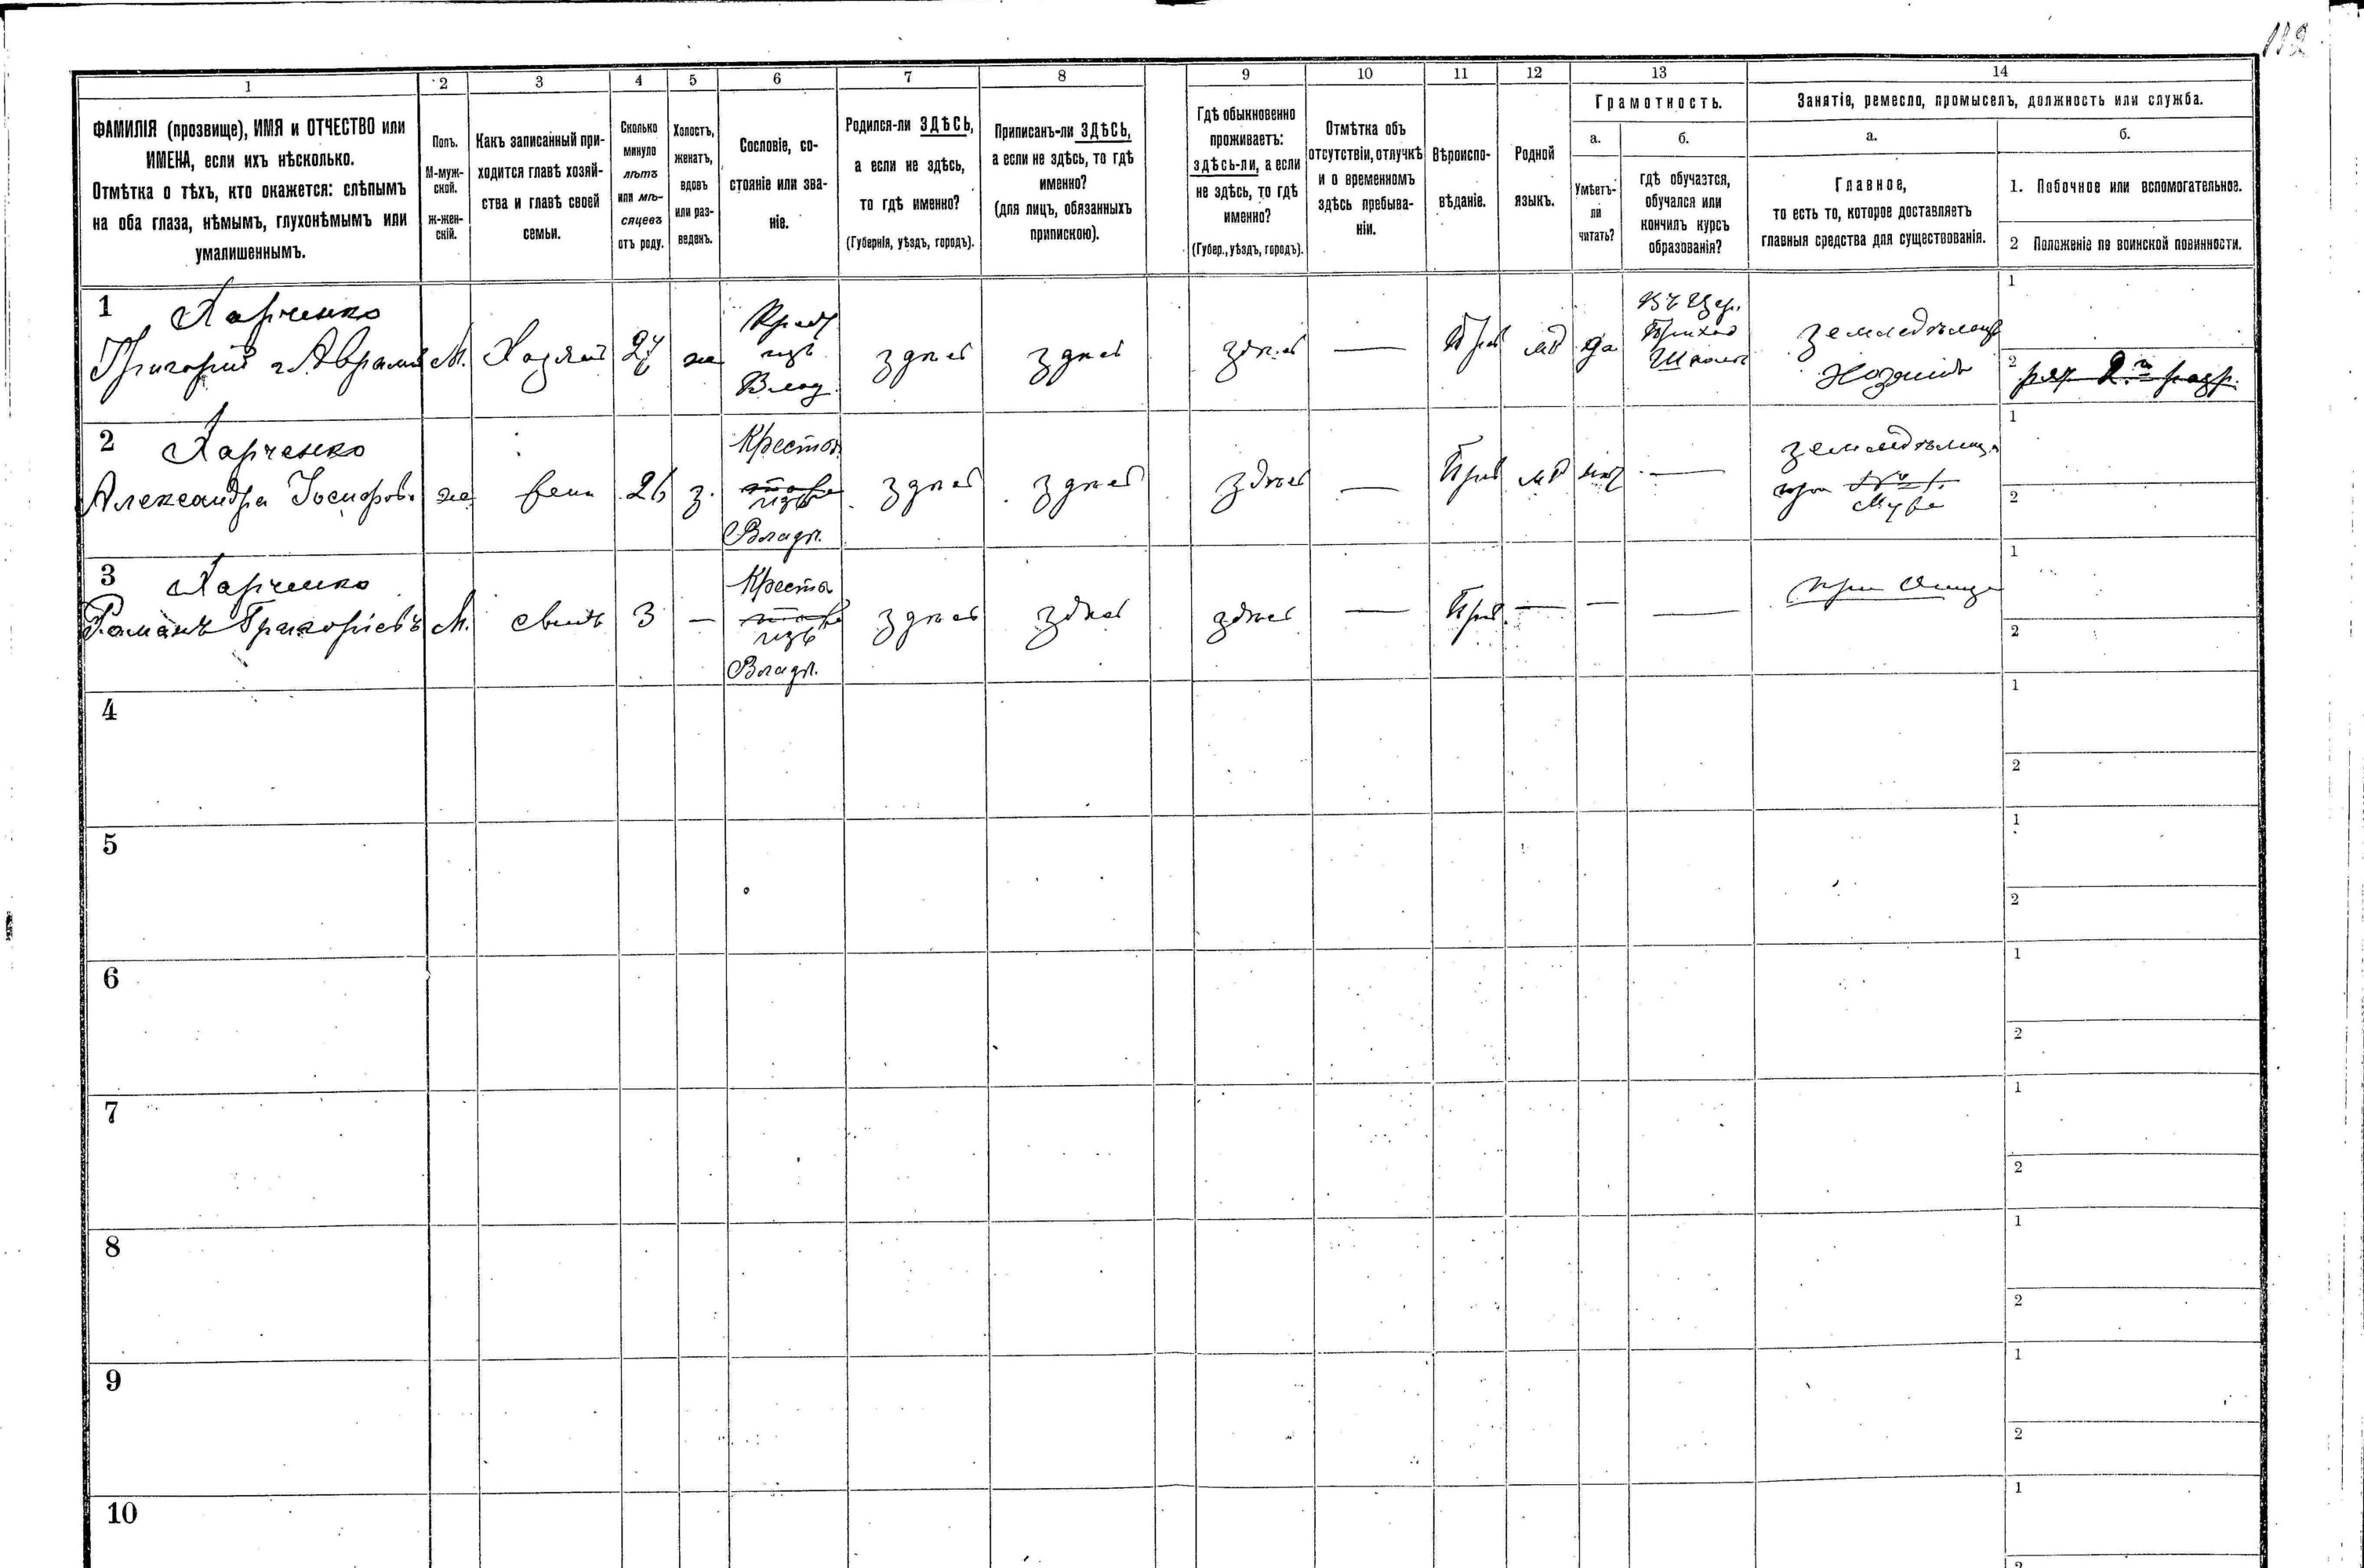 112
1 2 3 4 5 6 7 8 9 10 11 12 13 14
ФАМИЛІЯ (прозвище), ИМЯ и ОТЧЕСТВО или
ИМЕНА, если ихъ нѣсколько.
Отмѣтка о тѣхъ, кто окажется: слѣпымъ
на оба глаза, нѣмымъ, глухонѣмымъ или
умалишеннымъ.
Полъ.
М-муж-
ской.
ж-жен-
скій.
Какъ записанный при-
ходится главѣ хозяй-
ства и главѣ своей
семьи.
Сколько
минуло
лѣтъ
или мѣ-
сяцевъ
отъ роду.
Холостъ,
женатъ,
вдовъ
или раз-
веденъ.
Сословіе, со-
стояніе или зва-
ніе.
Родился-ли ЗДѢСЬ,
а если не здѣсь,
то гдѣ именно?
(Губернія, уѣздъ, городъ).
Приписанъ-ли ЗДѢСЬ,
а если не здѣсь, то гдѣ
именно?
(для лицъ, обязанныхъ
припискою).
Гдѣ обыкновенно
проживаетъ:
здѣсь-ли, а если
не здѣсь, то гдѣ
именно?
(Губер., уѣздъ, городъ).
Отмѣтка объ
отсутствіи, отлучкѣ
и о временномъ
здѣсь пребыва-
ніи.
Вѣроиспо-
вѣданіе.
Родной
языкъ.
Грамотность.
а.
Умѣетъ-
ли
читать?
б.
гдѣ обучается,
обучался или
кончилъ курсъ
образованія?
Занятіе, ремесло, промыселъ, должность или служба.
а.
Главное,
то есть то, которое доставляетъ
главныя средства для существованія.
б.
1. Побочное или вспомогательное.
2 Положеніе по воинской повинности.
1 Харченко
Григорій Аврами М. Хозяин 27 же
Крест
изъ
Влад.
здѣсь здѣсь здѣсь — Прав мр да
Въ Цер.
Приход
Школе
земледѣлец
Хозяинъ
1
2 ряд 2го разр.
2 Харченко
Александра Іосифов. же жена 26 з.
Крестья
изъ
Владл.
здѣсь здѣсь здѣсь — Прав мр нет —
земледѣлец.
при №1.
Муже
1
2
3 Харченко
Романъ Григоріевъ М. сынъ 3 —
Крестья
изъ
Владл.
здѣсь здѣсь здѣсь — Прав. — — —
при Отце
1
2
4
1
2
5
1
2
6
1
2
7
1
2
8
1
2
9
1
2
10
1
2